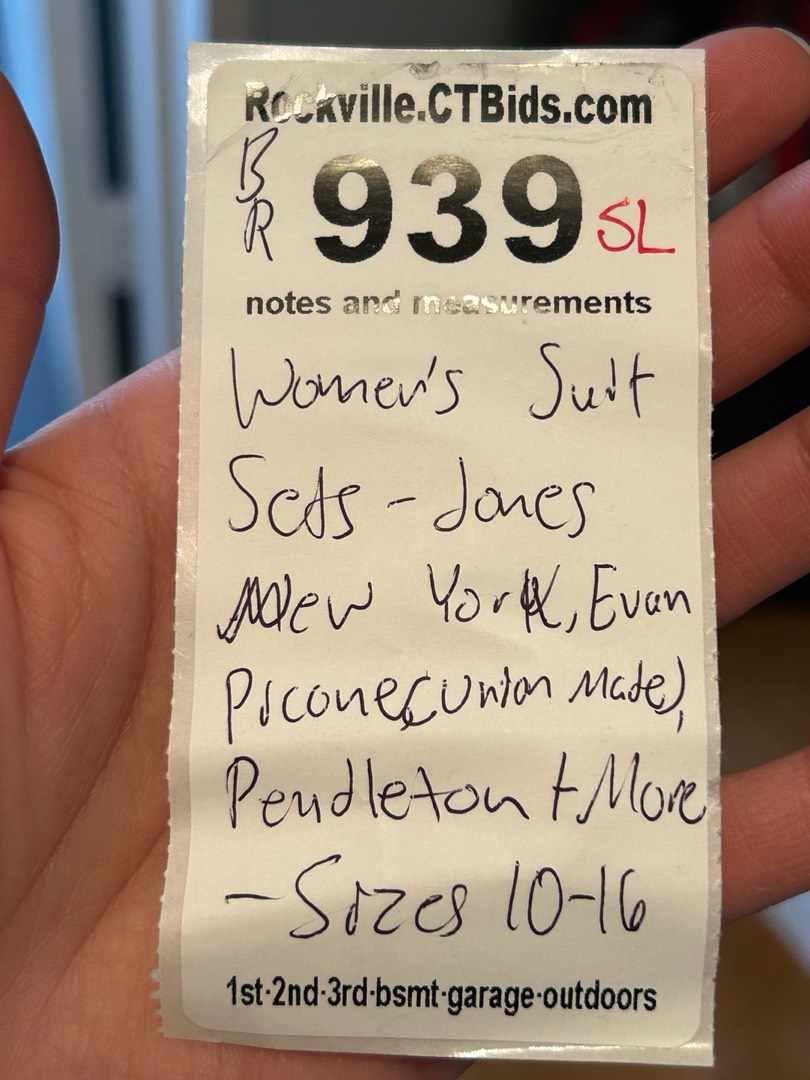 Rockville.CTBids.com
BR 939 SL
notes and measurements
Women's Suit
Sets - Jones
New York, Evan
Picone (Union Made),
Pendleton + More
- Sizes 10-16
1st·2nd·3rd·bsmt·garage·outdoors